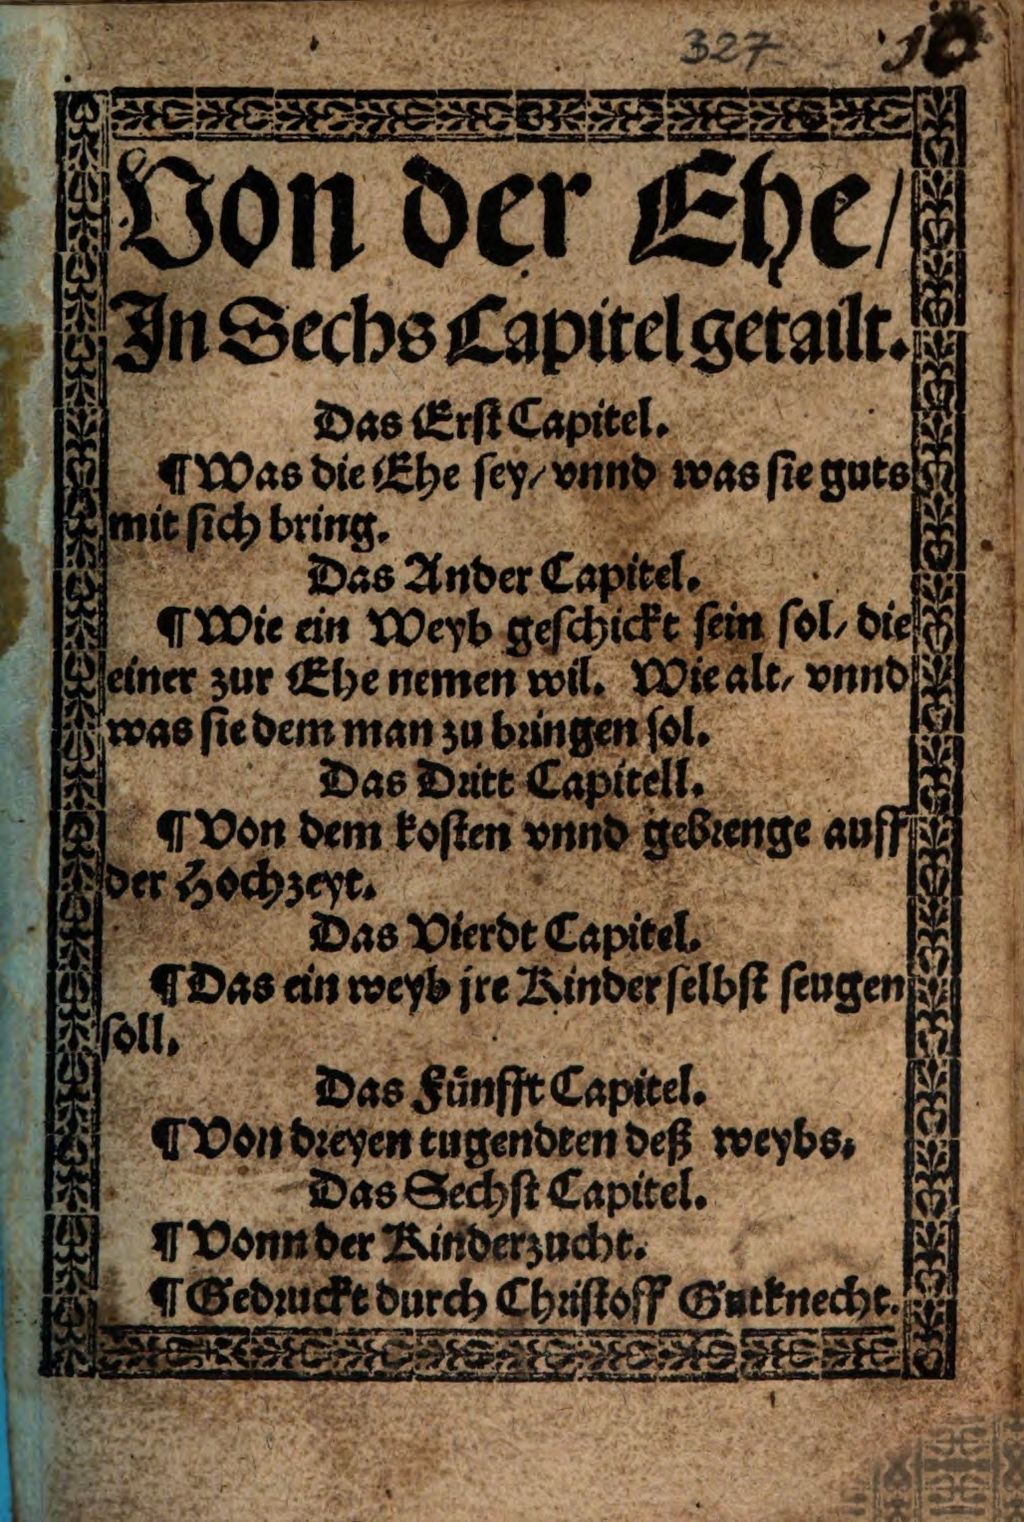 327 10
Von der Ehe/
In Sechs Capitel getailt.
Das Erst Capitel.
¶ Was die Ehe sey/ vnnd was sie guts
mit sich bring.
Das Ander Capitel.
¶ Wie ein Weyb geschickt sein sol/ die
einer zur Ehe nemen wil. Wie alt/ vnnd
was sie dem man zu bringen sol.
Das Dritt Capitell.
¶ Von dem kosten vnnd gebrenge auff
der Hochzeyt.
Das Vierdt Capitel.
¶ Das ein weyb jre Kinder selbst seugen
soll.
Das Fünfft Capitel.
¶ Von dreyen tugendten deß weybs.
Das Sechst Capitel.
¶ Vonn der Kinderzucht.
¶ Gedruckt durch Christoff Gutknecht.